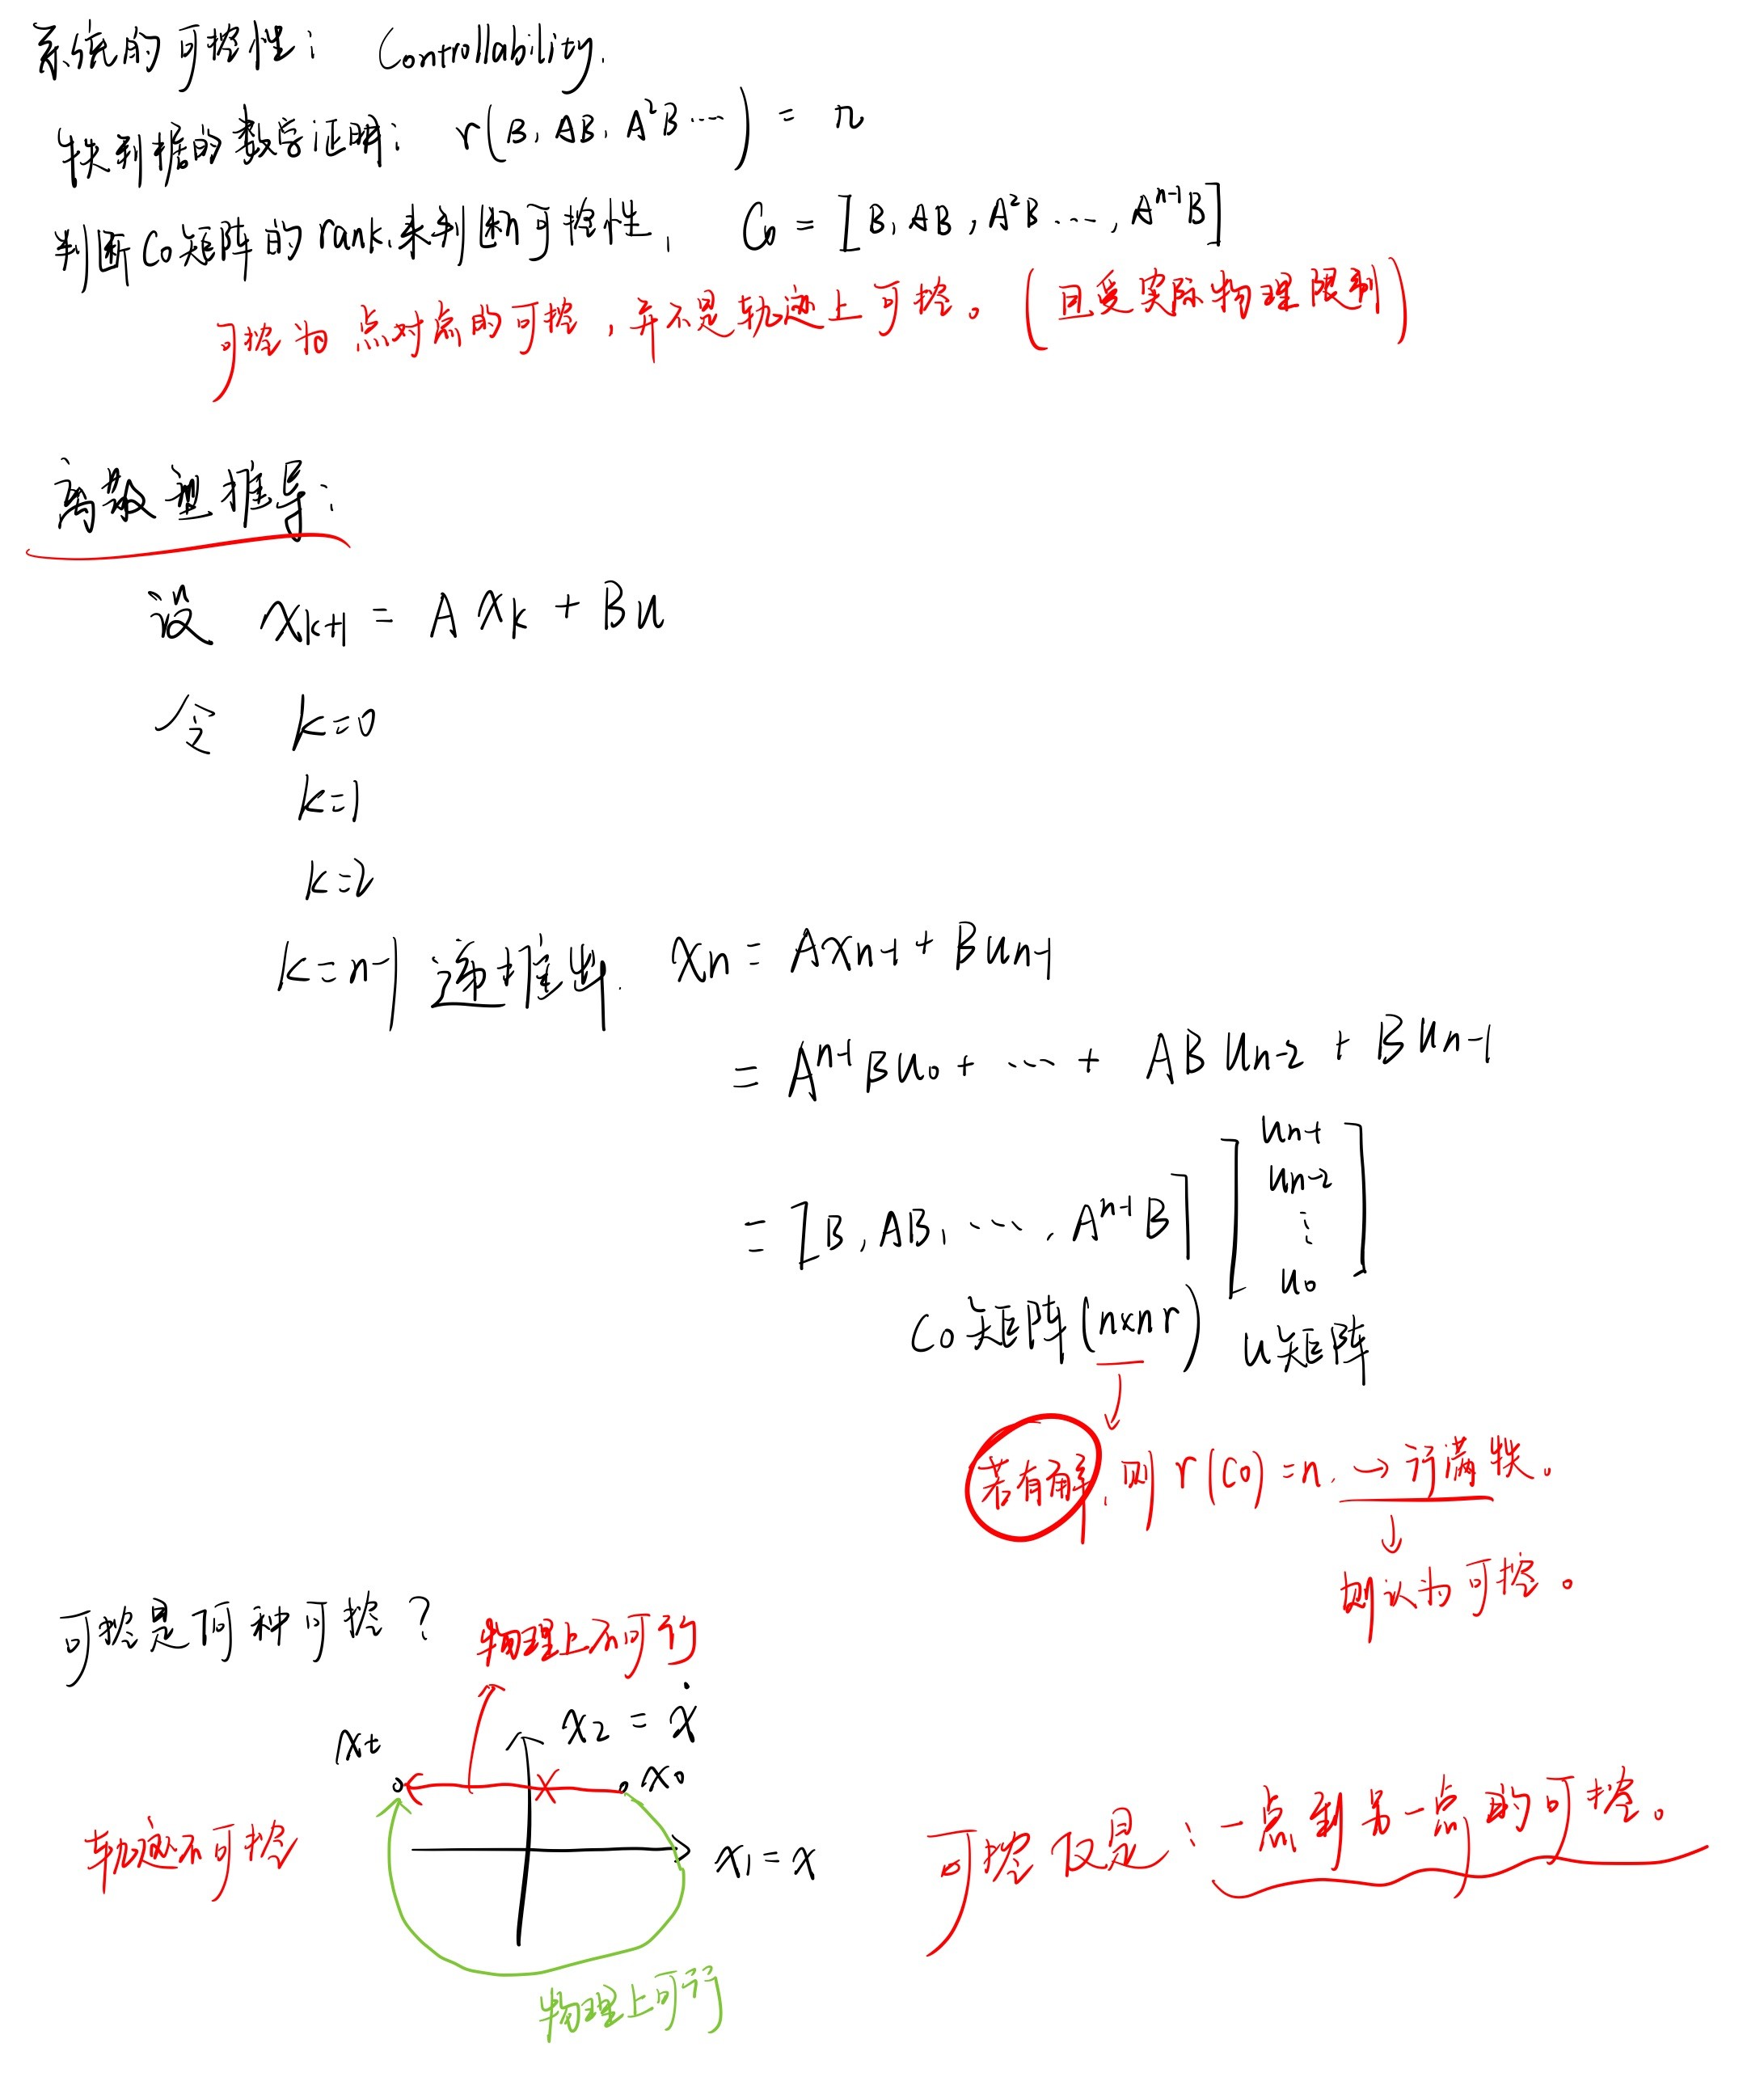 系统的可控性： Controllability.
秩判据的数学证明： r(B, AB, A²B …) = n
判断Co矩阵的rank来判断可控性， Co = [B, AB, A²B …, Aⁿ⁻¹B]
可控为 点对点的可控，并不是轨迹上可控。（且受实际物理限制）
离散型推导：
设 x_{k+1} = A x_k + B u
令 k=0
k=1
k=2
k=n-1 递推出. x_n = A x_{n-1} + B u_{n-1}
= Aⁿ⁻¹B u₀ + … + AB u_{n-2} + B u_{n-1}
= [B, AB, …, Aⁿ⁻¹B] [u_{n-1} u_{n-2} ⋮ u₀]
Co矩阵(n×nr) u矩阵
若有解, 则 r(Co) = n. → 行满秩。
↓
则认为可控。
可控是何种可控？
物理上不可行
x₂ = ẋ
x_t
x₀
x₁ = x
轨迹不可控
物理上可行
可控仅是：一点到另一点的可控。